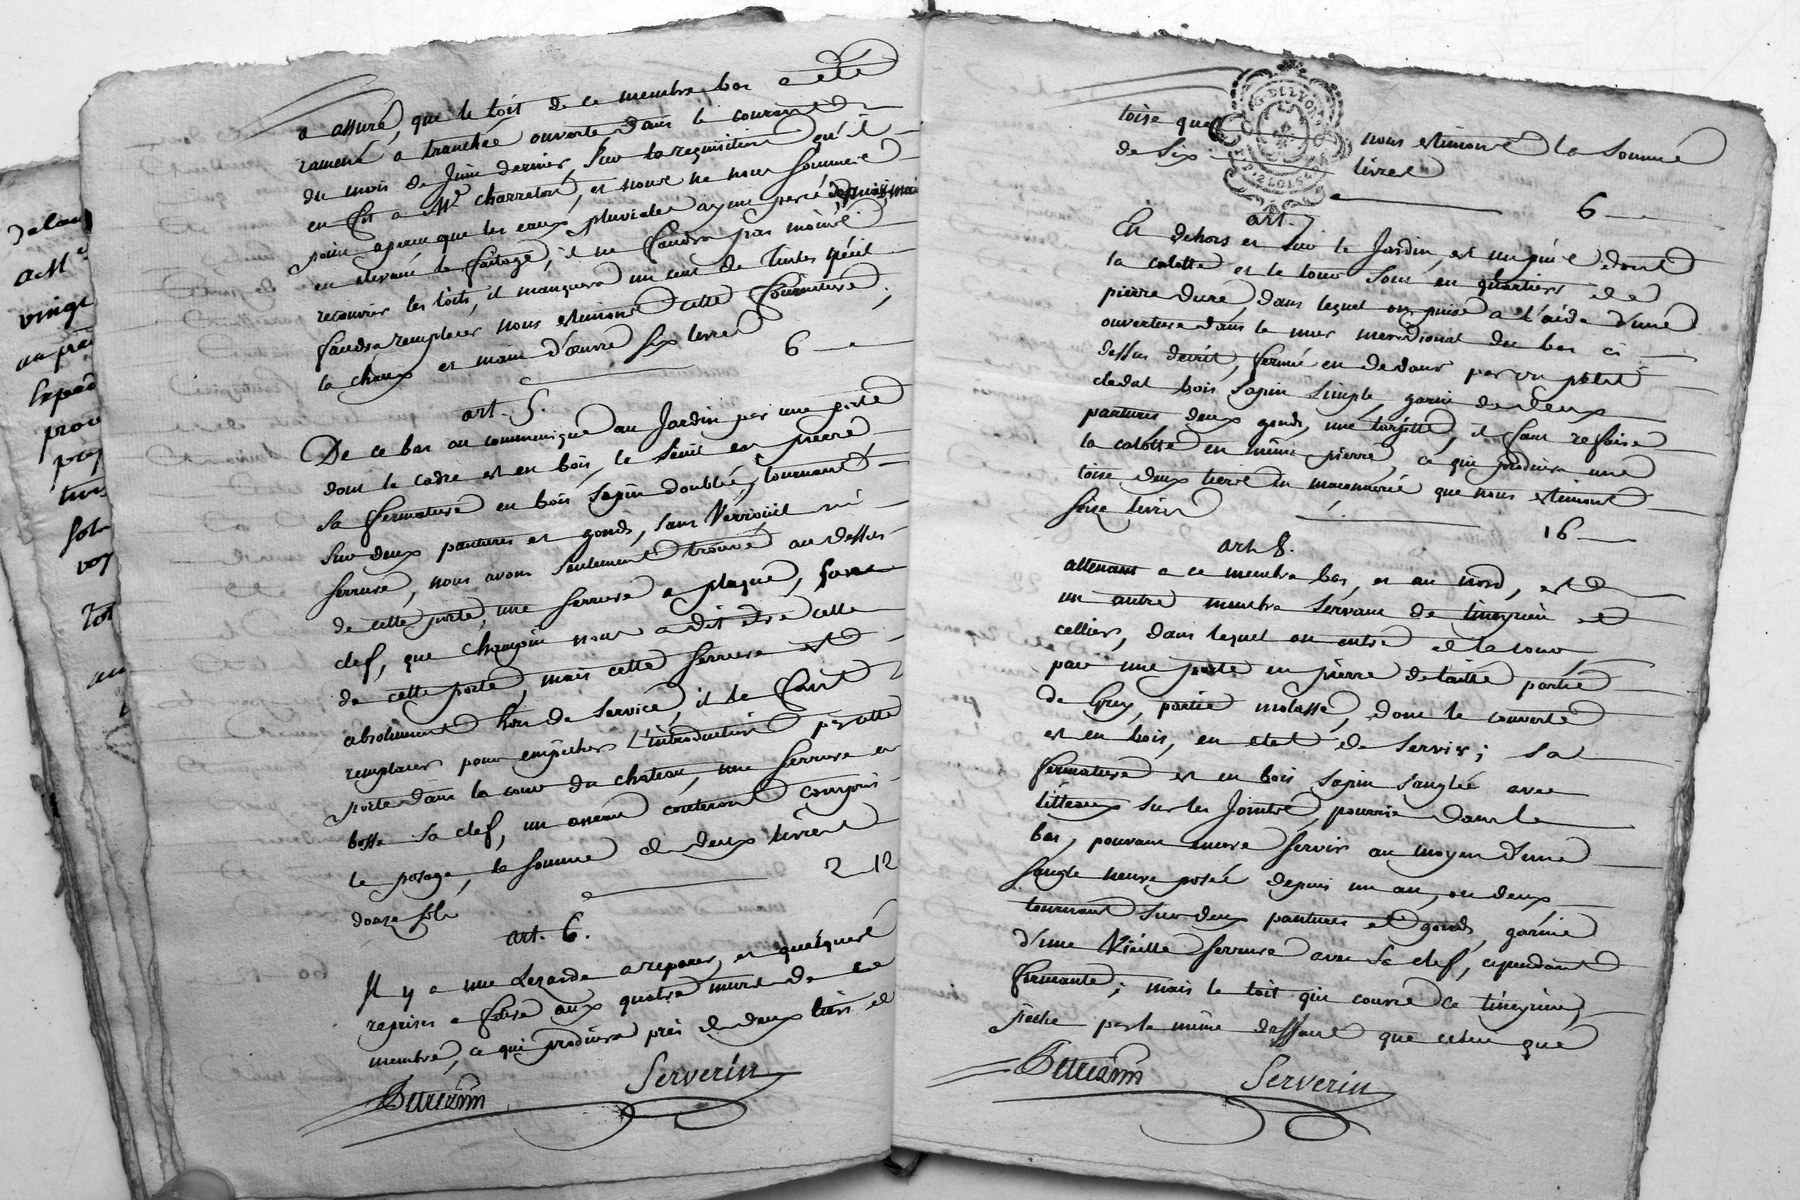 a assuré, que le toit de ce membre bas a été
ramené a tranchée ouverte dans le courant
du mois de Juin dernier, sur la requisition qu'il
en fit a Mr. Charreton, et nous ne nous sommes
point aperçu que les eaux pluviales ayent percé
en elevant le faitage, il ne faudra pas moins
recouvrir les toits, il manquera un cent de tuiles qu'il
faudra remplacer nous estimons cette fourniture,
la chaux et main d'œuvre six livres 6
art. 5.
De ce bas on communique au Jardin par une porte
dont le cadre est en bois, le seuil en pierre,
sa fermeture en bois sapin doublé, tournant
sur deux pantures et gonds, sans verrouil ni
serrure, nous avons seulement trouvé au dessus
de cette porte, une serrure a plaque, sans
clef, que Champin nous a dit être celle
de cette porte, mais cette serrure est
absolument hors de service, il la faut
remplacer pour empêcher l'introduction par cette
porte dans la cour du chateau, une serrure en
bosse sa clef, un anneau couteront compris
le posage, la somme de deux livres
douze sols 2 12
art. 6.
Il y a une Lezarde a reparer, et quelques
reprises a faire aux quatre murs de ce
membre, ce qui produira près de deux tiers de
Serverin
toise que nous estimons la somme
de six livres 6
G. DE LYON
art. 7
En dehors et sur le Jardin, est un puis dont
la calotte et le tour sont en quartiers de
pierre dure, dans lequel on puise a l'aide d'une
ouverture dans le mur meridional du bas ci
dessus decrit, fermée en dedans par un petit
cledat bois sapin simple, garni de deux
pantures deux gonds, une targette, il faut refaire
la calotte en même pierre, ce qui produira une
toise deux tiers en maconnerie que nous estimons
seize livres 16
art. 8.
attenant a ce membre bas, et au nord, est
un autre membre servant de tinepier et
cellier, dans lequel on entre de la cour
par une porte en pierre de taille partie
de Grey, partie molasse, dont le couverte
est en bois, en etat de servir; sa
fermeture est en bois sapin sanglée avec
litteaux sur les joints, pourrie dans le
bas, pouvant encore servir au moyen d'une
sangle neuve posée depuis un an, ou deux
tournant sur deux pantures et gonds, garnie
d'une vieille serrure avec sa clef, cependant
fermante; mais le toit qui couvre ce
peche par le même deffaut que celui que
Serverin